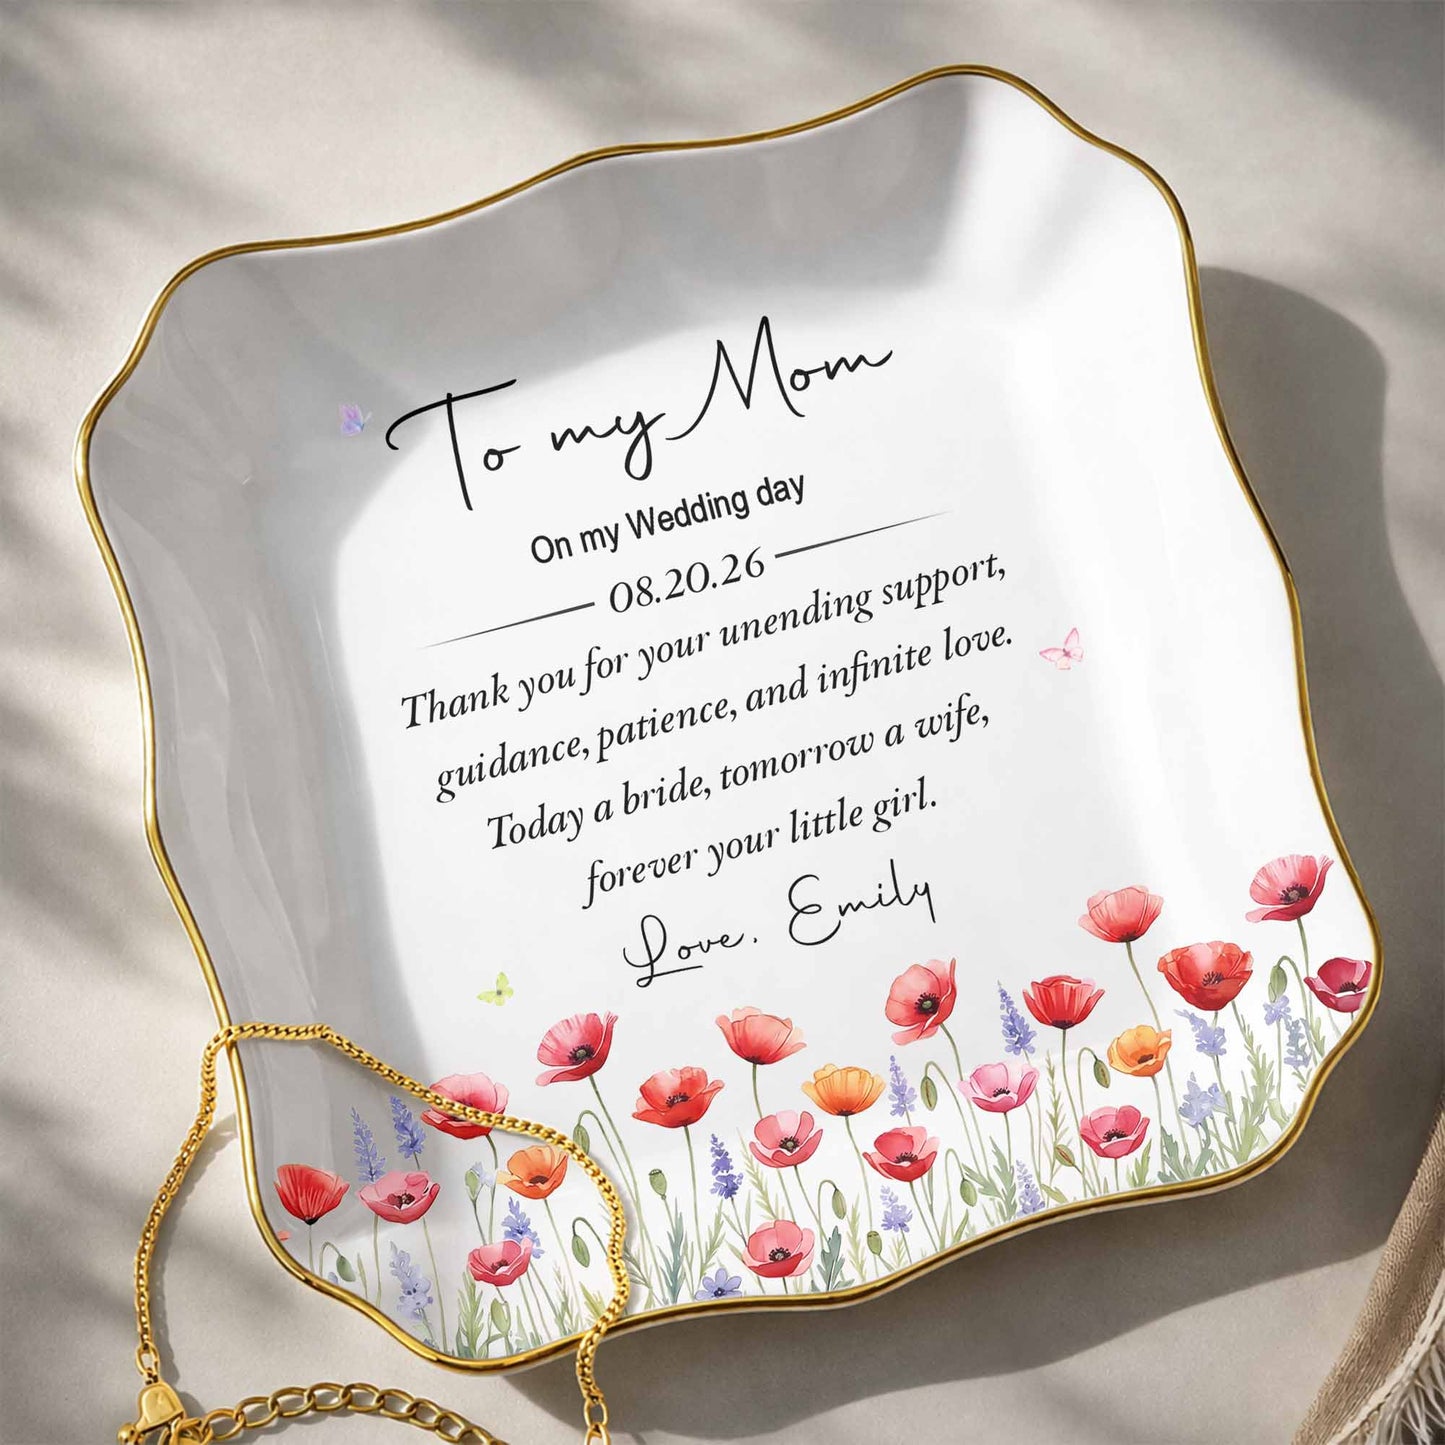 To my Mom
On my Wedding day
08.20.26
Thank you for your unending support,
guidance, patience, and infinite love.
Today a bride, tomorrow a wife,
forever your little girl.
Love, Emily